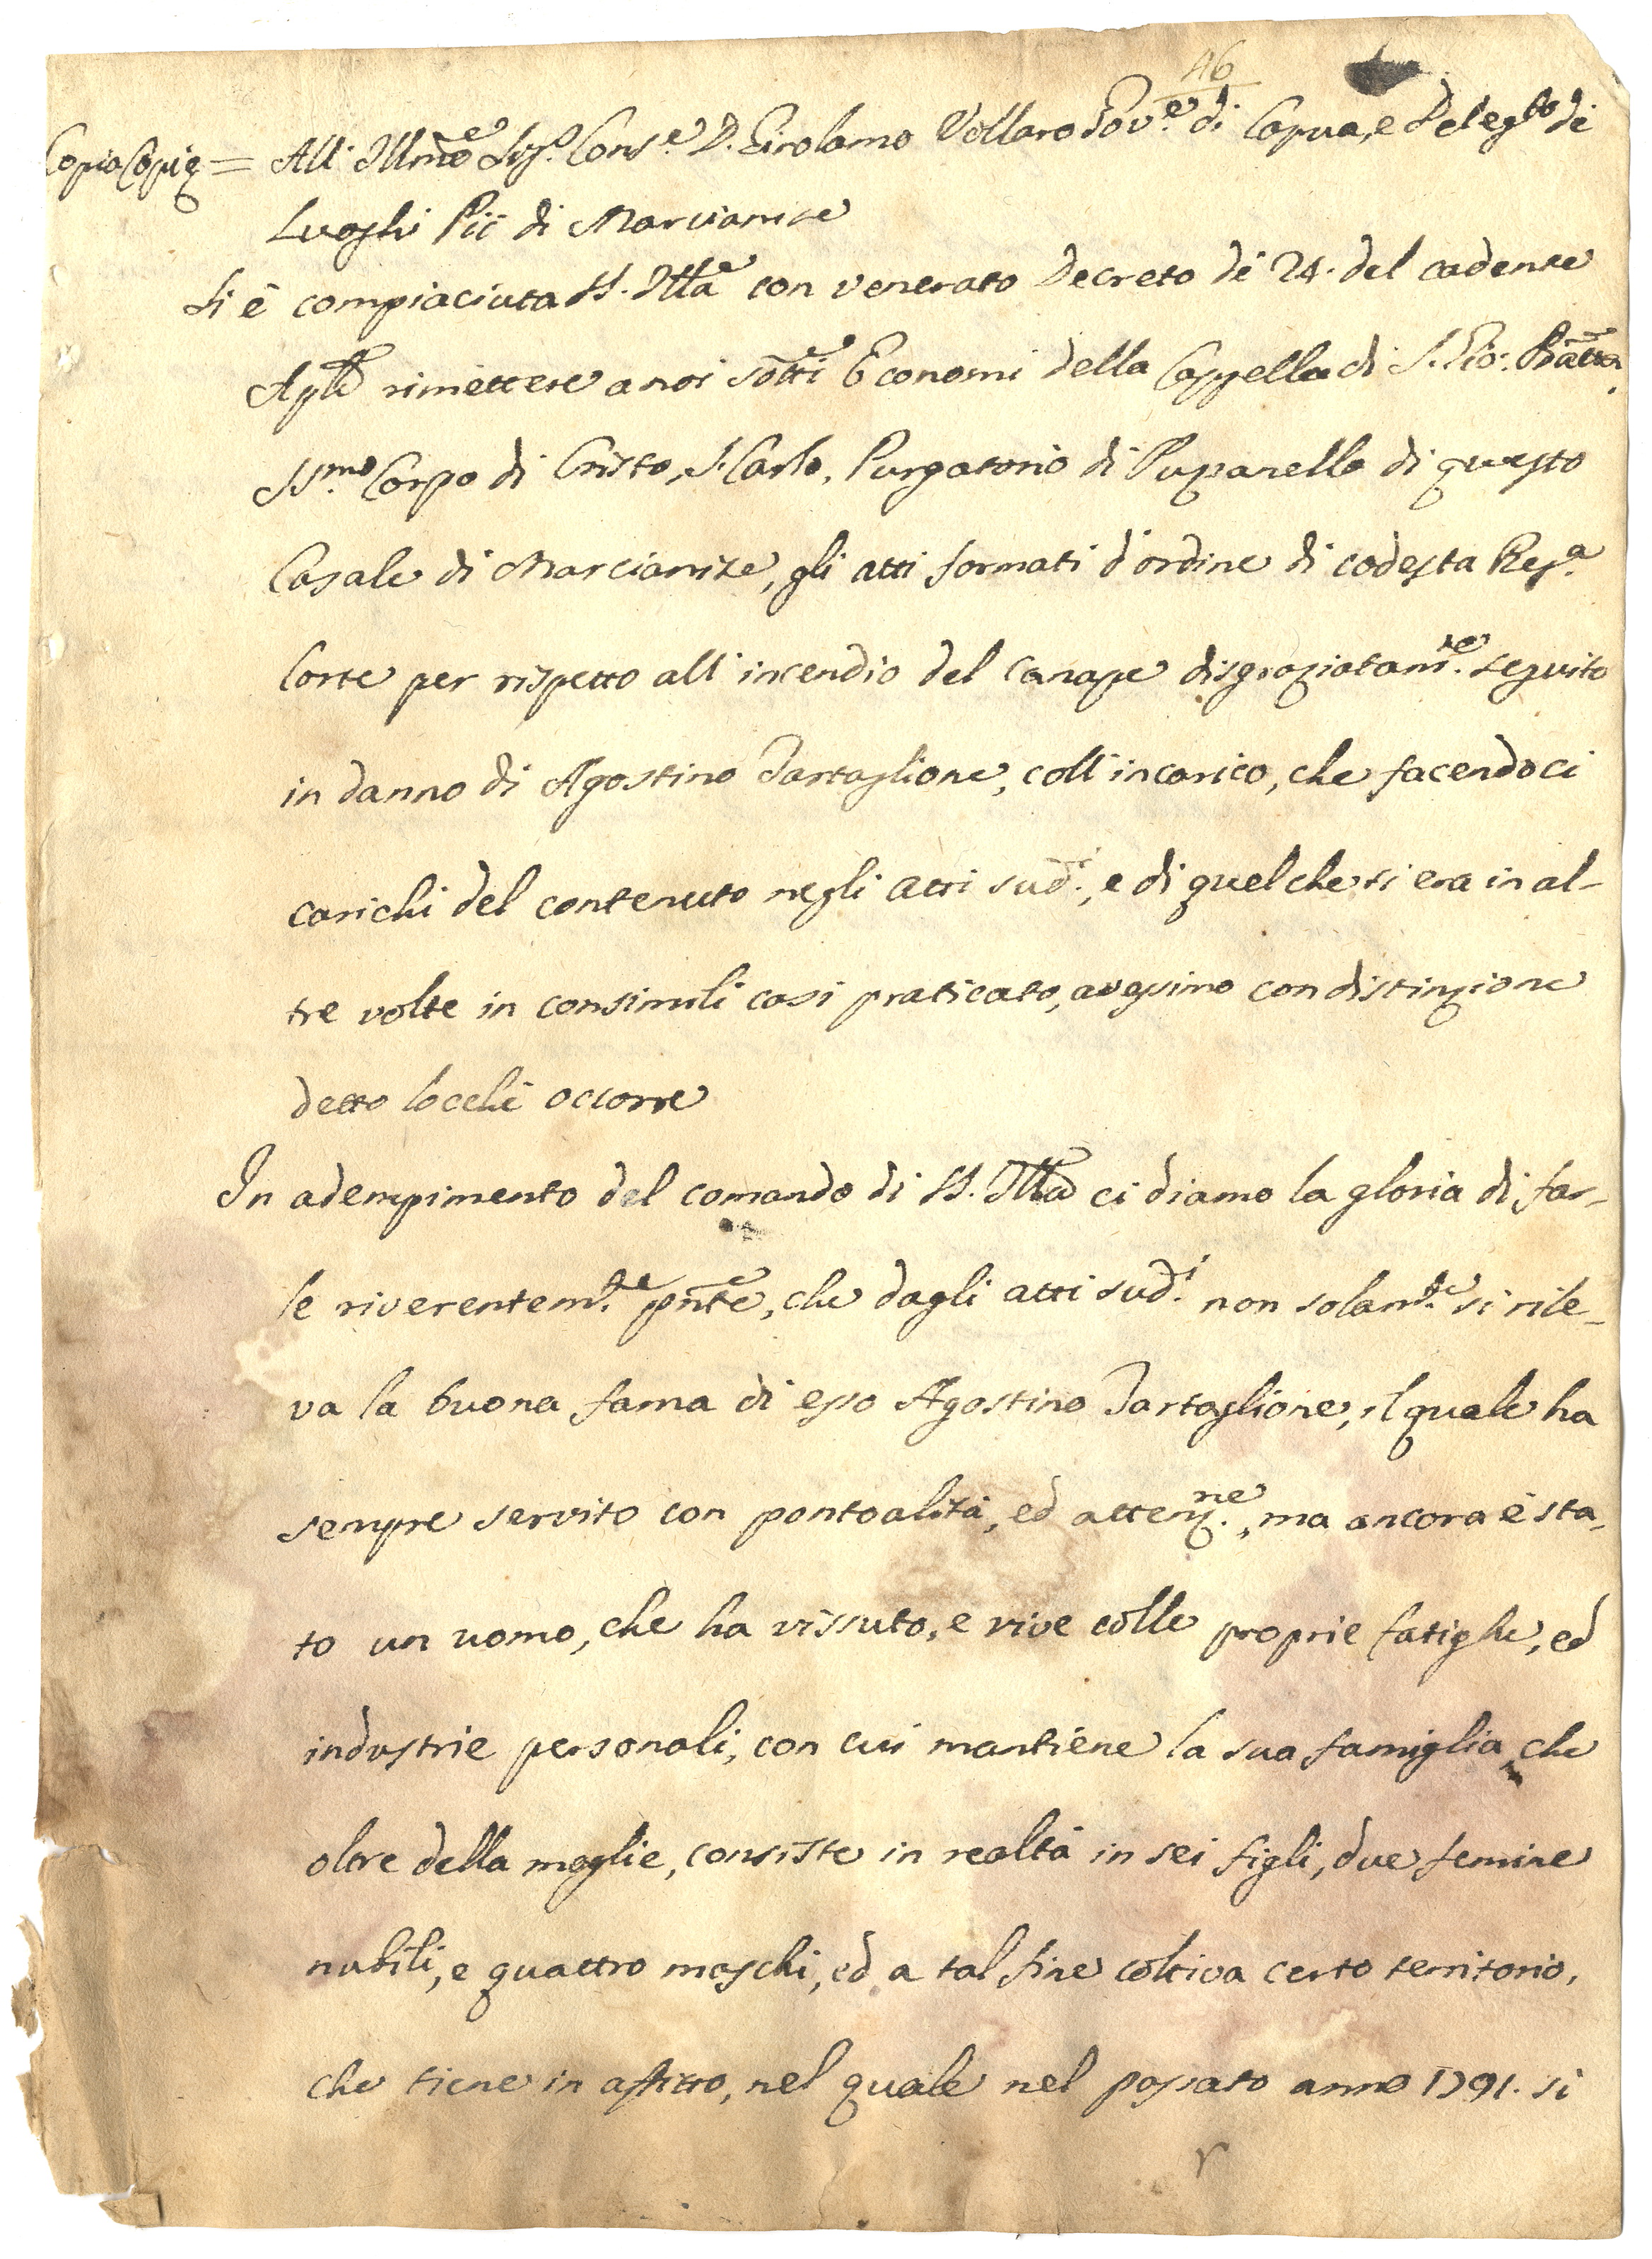 46
Copia Copię = All' Ill̃mo Sig.o Cons.e D. Girolamo Vollaro Gov.e di Capua, e Deleg.to de
Luoghi Pii di Marcianise
Si è compiaciuta V.S. Ill̃a con venerato Decreto de 24. del cadente
Aple rimettere a noi sõtti Economi della Cappella di S. Gio: Bãtta,
SS.mo Corpo di Cristo, S. Carlo, Purgatorio di Puzzaniello di questo
Casale di Marcianise, gli atti formati d'ordine di codesta Reg.a
Corte per rispetto all' incendio del Canape disgraziatam.te seguito
in danno di Agostino Tartaglione, coll' incarico, che facendoci
carichi del contenuto negli atti sud.i, e di quel che si era in al-
tre volte in consimili casi praticato, avessimo con distinzione
detto locchè occorre
In adempimento del comando di V.S. Ill̃a ci diamo la gloria di far-
le riverentem.te pñte, che dagli atti sud.i non solam.te si rile-
va la buona fama di esso Agostino Tartaglione, il quale ha
sempre servito con pontoalità, ed attenz.ne, ma ancora è sta-
to un uomo, che ha vissuto, e vive colle proprie fatighe, ed
industrie personali, con cui mantiene la sua famiglia, che
oltre della moglie, consiste in realtà in sei figli, due femine
nubili, e quattro maschi, ed a tal fine coltiva certo territorio,
che tiene in affitto, nel quale nel passato anno 1791. si